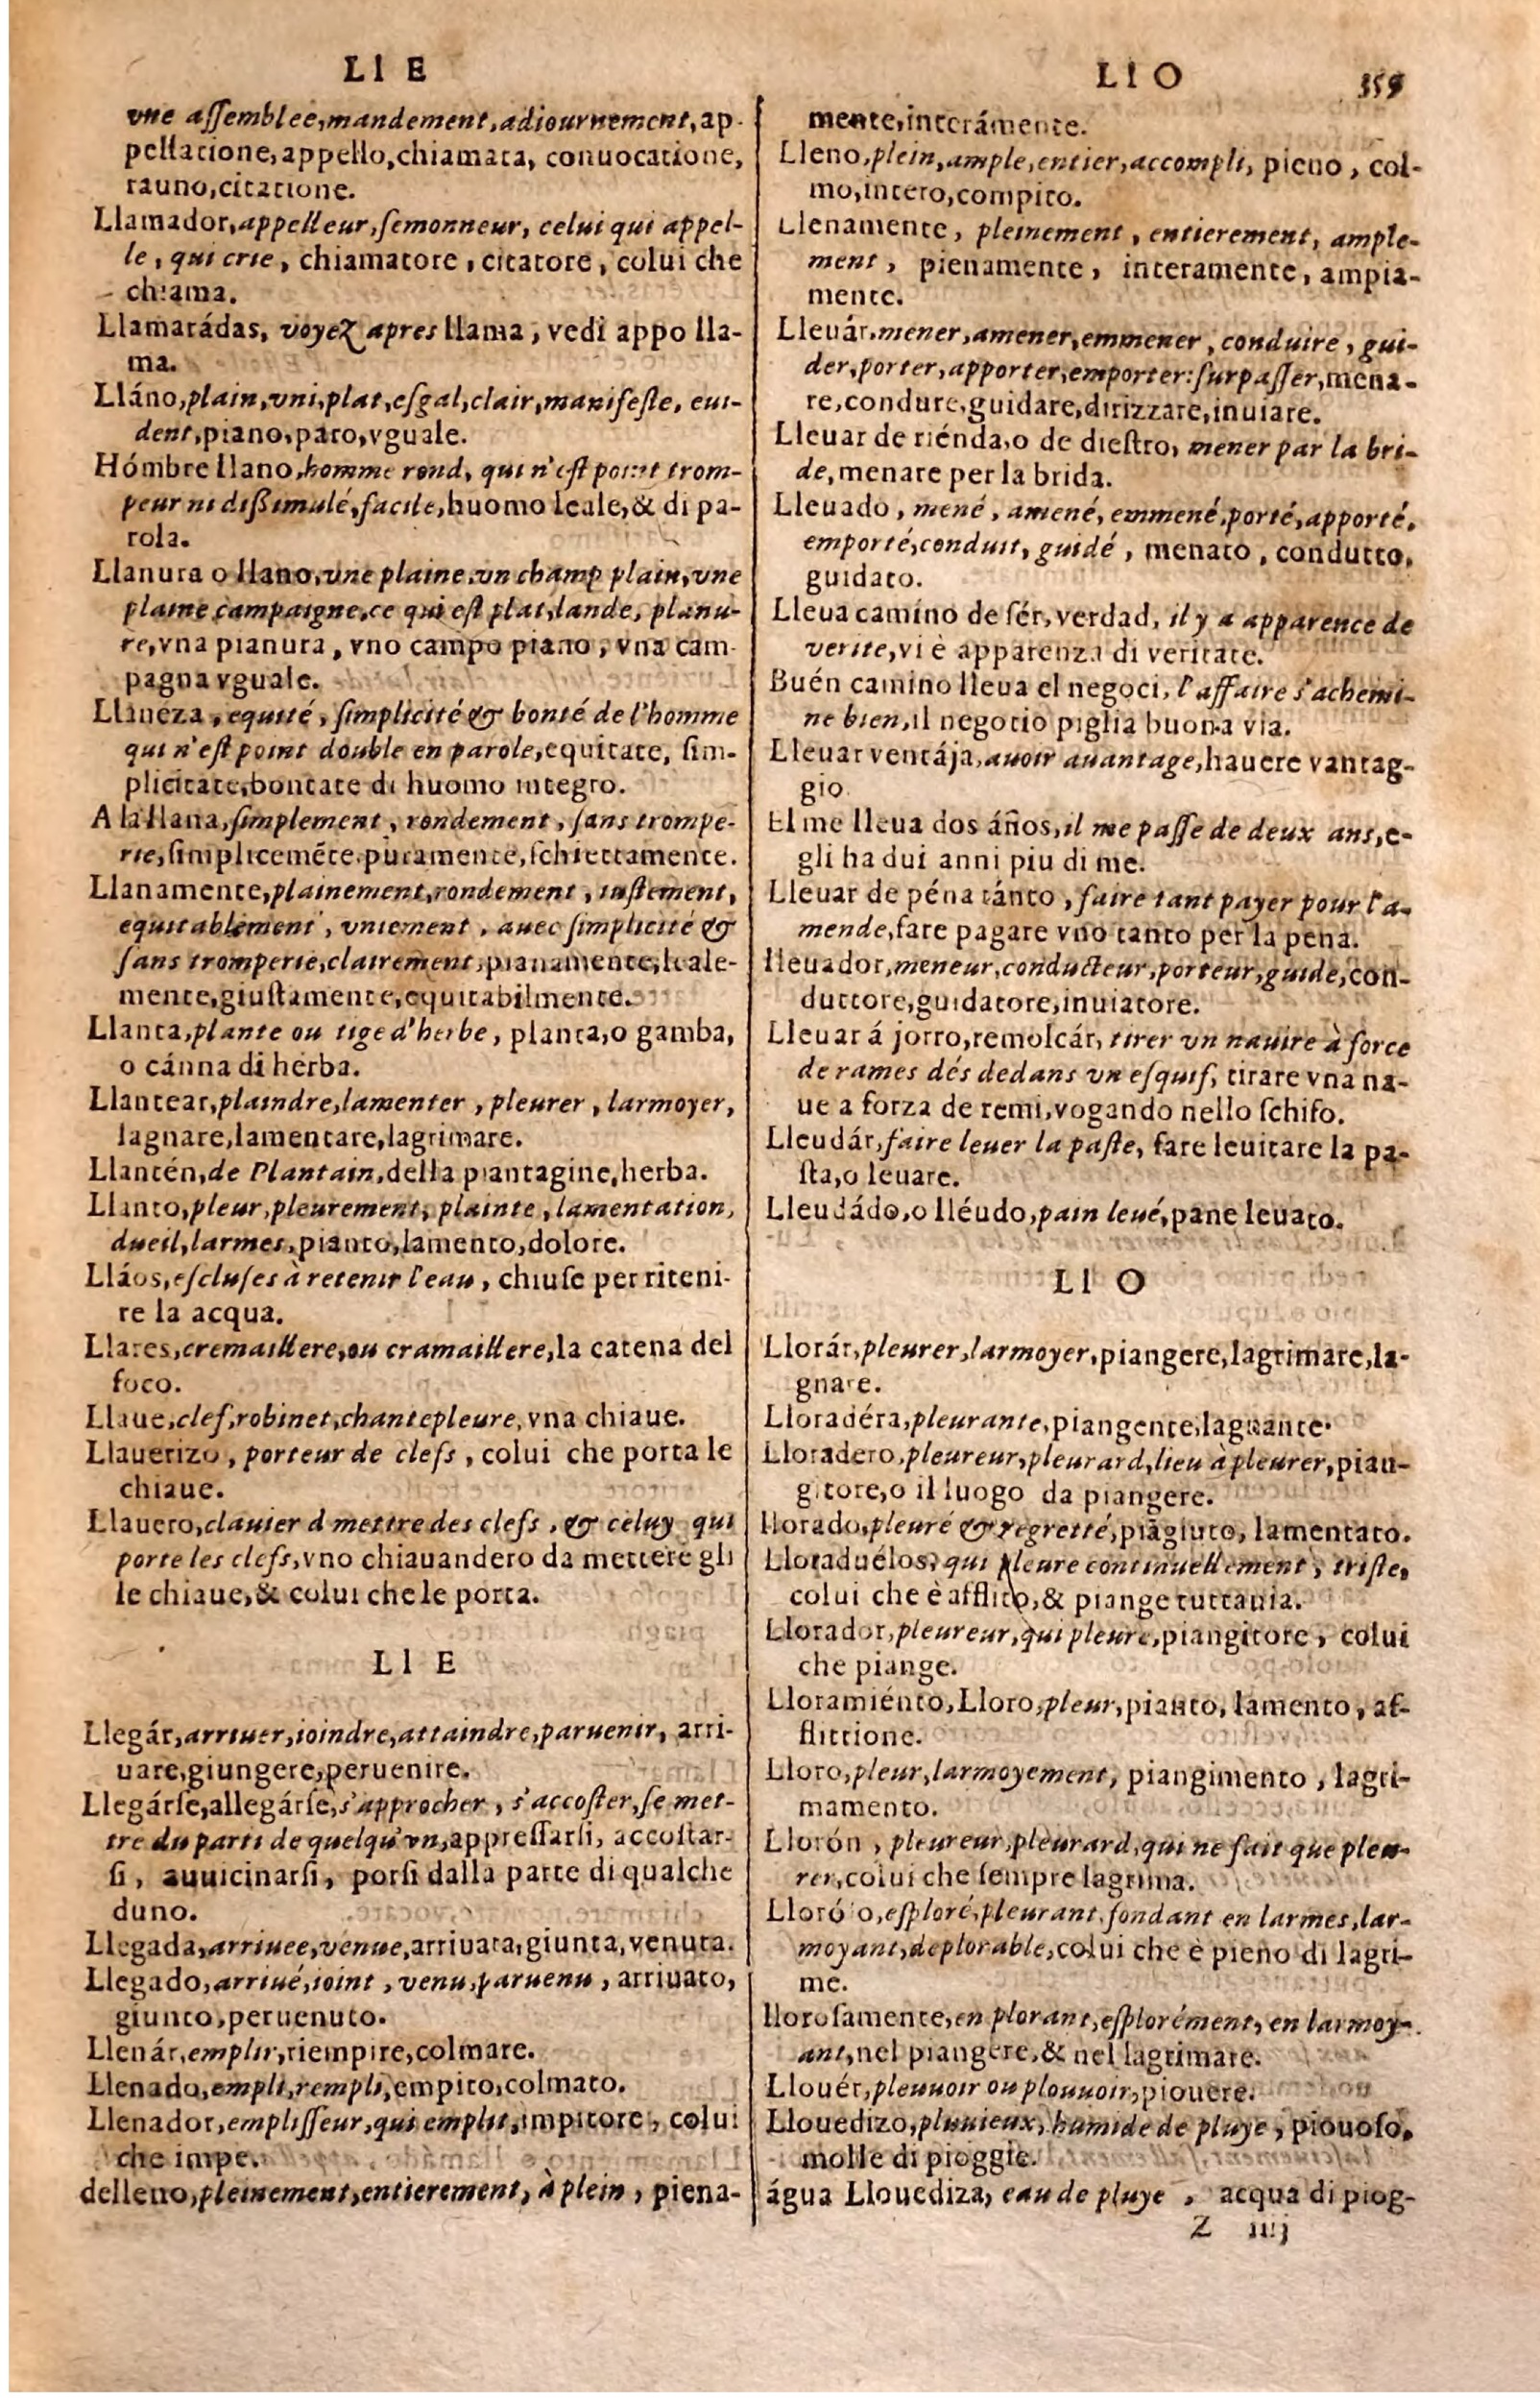 LI E
vne assemblee, mandement, adiournement, ap-
pellatione, appello, chiamata, conuocatione,
rauno, citatione.
Llamador, appelleur, semonneur, celui qui appel-
le, qui crie, chiamatore, citatore, colui che
chiama.
Llamarádas, voyez apres llama, vedi appo lla-
ma.
Lláno, plain, vni, plat, esgal, clair, manifeste, eui-
dent, piano, paro, vguale.
Hómbre llano, homme rond, qui n'est point trom-
peur ni dissimulé, facile, huomo leale, & di pa-
rola.
Llanura o llano, vne plaine. vn champ plain, vne
plaine campaigne, ce qui est plat, lande, planu-
re, vna pianura, vno campo piano, vna cam-
pagna vguale.
Llaneza, equité, simplicité & bonté de l'homme
qui n'est point double en parole, equitate, sim-
plicitate, bontate di huomo integro.
A la llana, simplement, rondement, sans trompe-
rie, simplicemēte. puramente, schiettamente.
Llanamente, plainement, rondement, iustement,
equitablement, vniement, auec simplicité &
sans tromperie, clairement, pianamente, leale-
mente, giustamente, equitabilmente.
Llanta, plante ou tige d'herbe, planta, o gamba,
o cánna di herba.
Llantear, plaindre, lamenter, pleurer, larmoyer,
lagnare, lamentare, lagrimare.
Llantén, de Plantain, della piantagine, herba.
Llanto, pleur, pleurement, plainte, lamentation,
dueil, larmes, pianto, lamento, dolore.
Lláos, escluses à retenir l'eau, chiuse per riteni-
re la acqua.
Llares, cremaillere, ou cramaillere, la catena del
foco.
Llaue, clef, robinet, chantepleure, vna chiaue.
Llauerizo, porteur de clefs, colui che porta le
chiaue.
Llauero, clauier d mettre des clefs, & celuy qui
porte les clefs, vno chiauandero da mettere gli
le chiaue, & colui che le porta.
Ll E
Llegár, arriuer, ioindre, attaindre, paruenir, arri-
uare, giungere, peruenire.
Llegárse, allegárse, s'approcher, s'accoster, se met-
tre du parti de quelqu'vn, appressarsi, accostar-
si, auuicinarsi, porsi dalla parte di qualche
duno.
Llegada, arriuee, venue, arriuata, giunta, venuta.
Llegado, arriué, ioint, venu, paruenu, arriuato,
giunto, peruenuto.
Llenár, emplir, riempire, colmare.
Llenado, empli, rempli, empito, colmato.
Llenador, emplisseur, qui emplit, impitore, colui
che impe.
delleno, pleinement, entierement, à plein, piena-
LI O 359
mente, interámente.
Lleno, plein, ample, entier, accompli, pieno, col-
mo, intero, compito.
Llenamente, pleinement, entierement, ample-
ment, pienamente, interamente, ampia-
mente.
Lleuár, mener, amener, emmener, conduire, gui-
der, porter, apporter, emporter: surpasser, mena-
re, condure, guidare, dirizzare, inuiare.
Lleuar de riénda, o de diestro, mener par la bri-
de, menare per la brida.
Lleuado, mené, amené, emmené, porté, apporté,
emporté, conduit, guidé, menato, condutto,
guidato.
Lleua camino de sér, verdad, il y a apparence de
verite, vi è apparenza di veritate.
Buén camino lleua el negoci, l'affaire s'achemi-
ne bien, il negotio piglia buona via.
Lleuar ventája, auoir auantage, hauere vantag-
gio
El me lleua dos áños, il me passe de deux ans, e-
gli ha dui anni piu di me.
Lleuar de péna tánto, faire tant payer pour l'a-
mende, fare pagare vno tanto per la pena.
lleuador, meneur, conducteur, porteur, guide, con-
duttore, guidatore, inuiatore.
Lleuar á jorro, remolcár, tirer vn nauire à force
de rames dés dedans vn esquif, tirare vna na-
ue a forza de remi, vogando nello schifo.
Lleudár, faire leuer la paste, fare leuitare la pa-
sta, o leuare.
Lleudádo, o lléudo, pain leué, pane leuato.
Ll O
Llorár, pleurer, larmoyer, piangere, lagrimare, la-
gnare.
Lloradéra, pleurante, piangente, lagnante.
Lloradero, pleureur, pleurard, lieu à pleurer, pian-
gitore, o il luogo da piangere.
llorado, pleuré & regretté, piāgiuto, lamentato.
Lloraduélos, qui pleure continuellement, triste,
colui che è afflito, & piange tuttauia.
Llorador, pleureur, qui pleure, piangitore, colui
che piange.
Lloramiénto, Lloro, pleur, pianto, lamento, af-
flittione.
Lloro, pleur, larmoyement, piangimento, lagri-
mamento.
Llorón, pleureur, pleurard, qui ne fait que pleu-
rer, colui che sempre lagrima.
Lloró o, esploré, pleurant, fondant en larmes, lar-
moyant, deplorable, colui che è pieno di lagri-
me.
llorosamente, en plorant, esplorément, en larmoy-
ant, nel piangere, & nel lagrimare.
Llouér, pleuuoir ou plouuoir, piouere.
Llouedizo, pluuieux, humide de pluye, piouoso,
molle di pioggie.
água Llouediza, eau de pluye, acqua di piog-
Z iiij